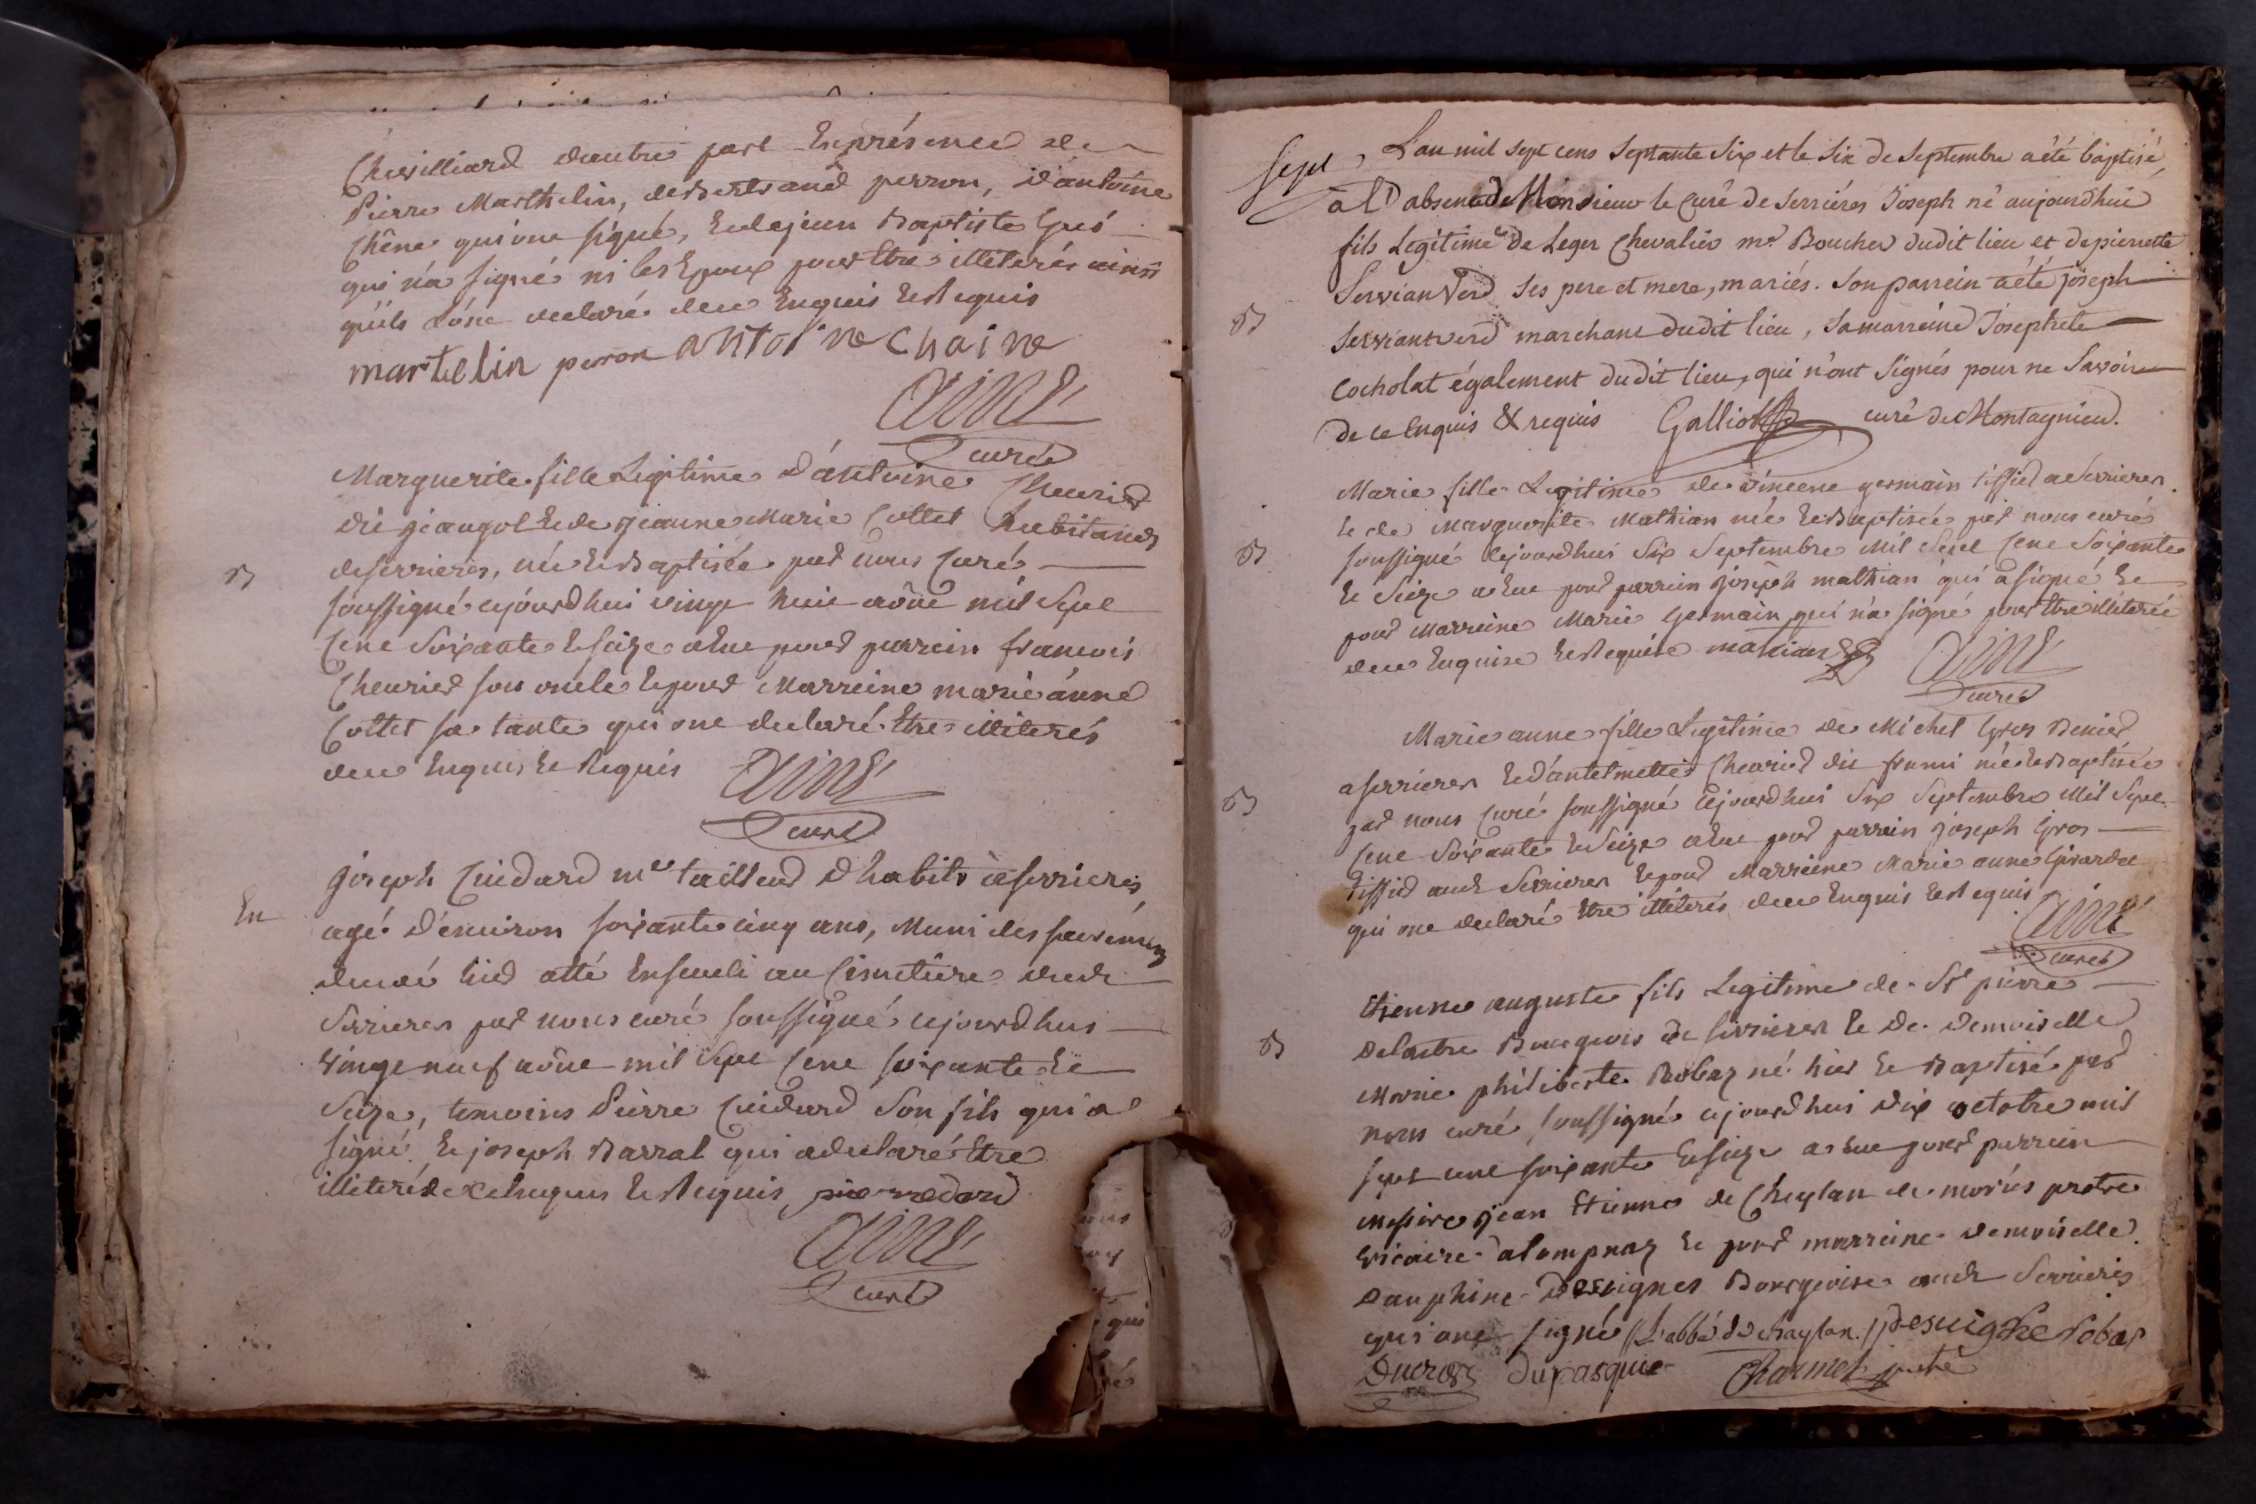 Chevilliard d'autre part En présence de
Pierre Marthelin, de Bertrand perron, d'antoine
Chêne qui ont signé, Et de jean Baptiste Gros
qui n'a signé ni les Epoux pour Etre illiterés ainsi
qu'ils L'ont declaré de ce Enquis Et Requis
martellin peron antoine chaine
Aimé
curé
Marguerite fille Legitime d'antoine Cheurier
dit jeangot Et de jeanne Marie Collet habitants
de serrieres, née Et Baptisée par nous Curé
B
soussigné cejourd'hui vingt huit août mil Sept
Cent Soixante Et seize a Eut pour parrein francois
Cheurier son oncle Et pour Marreine marie anne
Collet sa tante qui ont declaré Etre illiterés
de ce Enquis Et Requis
Aimé
curé
joseph Cuidard me tailleur d'habits à serrieres,
En
agé d'environ soixante cinq ans, Muni des sacremens
decedé hier atté Enseveli au Cimetiere dudt
Serrieres par nous curé soussigné cejourd'hui
vingt neuf août mil Sept Cent soixante Et
Seize, temoins Pierre Cuidard Son fils qui a
signé Et joseph Barral qui a declaré Etre
illiteré de ce Enquis Et Requis,
Aimé
curé
Sept
L'an mil sept cens Septante Six et le Six de Septembre a été baptisé,
à l'absence de Monsieur le Curé de Serriéres Joseph né aujourdhui
fils Legitime de Leger Chevalier me Boucher dudit lieu et de pierrette
Servianverd Ses pere et mere, mariés. Son parrein a été joseph
B
Servianverd marchant dudit lieu, Sa marreine Josephete
Cocholat également dudit lieu, qui n'ont Signés pour ne Savoir
de ce Enquis & requis Galliot curé de Montagnieu.
Marie fille Legitime de vincent germain tissier a Serrieres
Et de Marguerite Mathian née Et Baptisée par nous curé
B
soussigné cejourdhui Six Septembre Mil Sept Cent Soixante
Et Seize a Eut pour parrein joseph mathian qui a signé Et
pour Marreine Marie germain qui n'a signé pour Etre illiterée
de ce Enquise Et Requise matian
Aimé
curé
Marie anne fille Legitime de Michel Gros
a serrieres Et d'antelmette Cheurier dit née Et Baptisée
B
par nous Curé soussigné cejourdhui Six Septembre Mil Sept
Cent Soixante Et Seize a Eut pour parrein joseph Gros
tissier audt Serrieres Et pour Marreine Marie anne
qui ont declaré Etre illiterés de ce Enquis Et Requis
Aimé
curé
Etienne auguste fils Legitime de Sr pierre
Delastre Bourgeois de serrieres Et de Demoiselle
B
Marie philiberte Robaz né hier Et Baptisé par
nous curé soussigné cejourdhui dix octobre mil
sept cent soixante Et seize a Eut pour parrein
Messire jean Etienne de Cheylan de moriés pretre
vicaire Et pour marreine demoiselle
Dauphine Desvignes Bourgeoise audt Serrieres
qui ont signé L'abbé de cheylan. Desvigne robas
Ducros Dupasquier Charmet